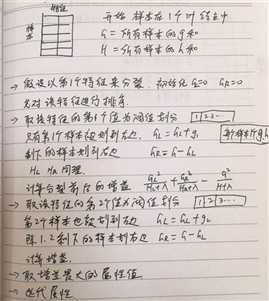 特征
样本
开始 样本在1个叶结点中
G = 所有样本的g和
H = 所有样本的h和
→ 假设以第1个特征来分裂，初始化 GL=0 GR=0
先对该特征进行排序
→ 取该特征的第1个值为阈值划分 1 2 3 …
只有第1个样本被划到左边，GL = GL+g1
剩下的样本划到右边 GR = G-GL
每个样本有g,h
HL HR 同理
计算分裂前后的增益 GL²/HL+λ + GR²/HR+λ - G²/H+λ
→ 取该特征的第2个值为阈值划分 1 2 3 …
第2个样本也被划到左边 GL = GL+g2
除1.2剩下的样本划右边 GR = G-GL
计算增益
→ 取增益最大的属性值
→ 迭代属性